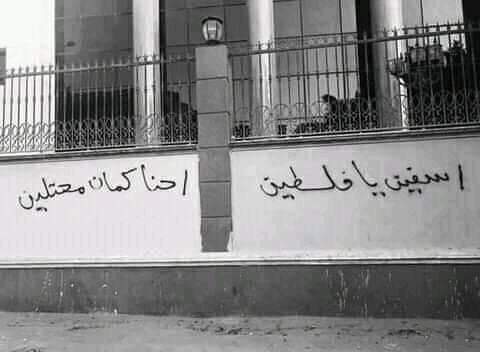 اسفين يا فلسطين
احنا كمان محتلين